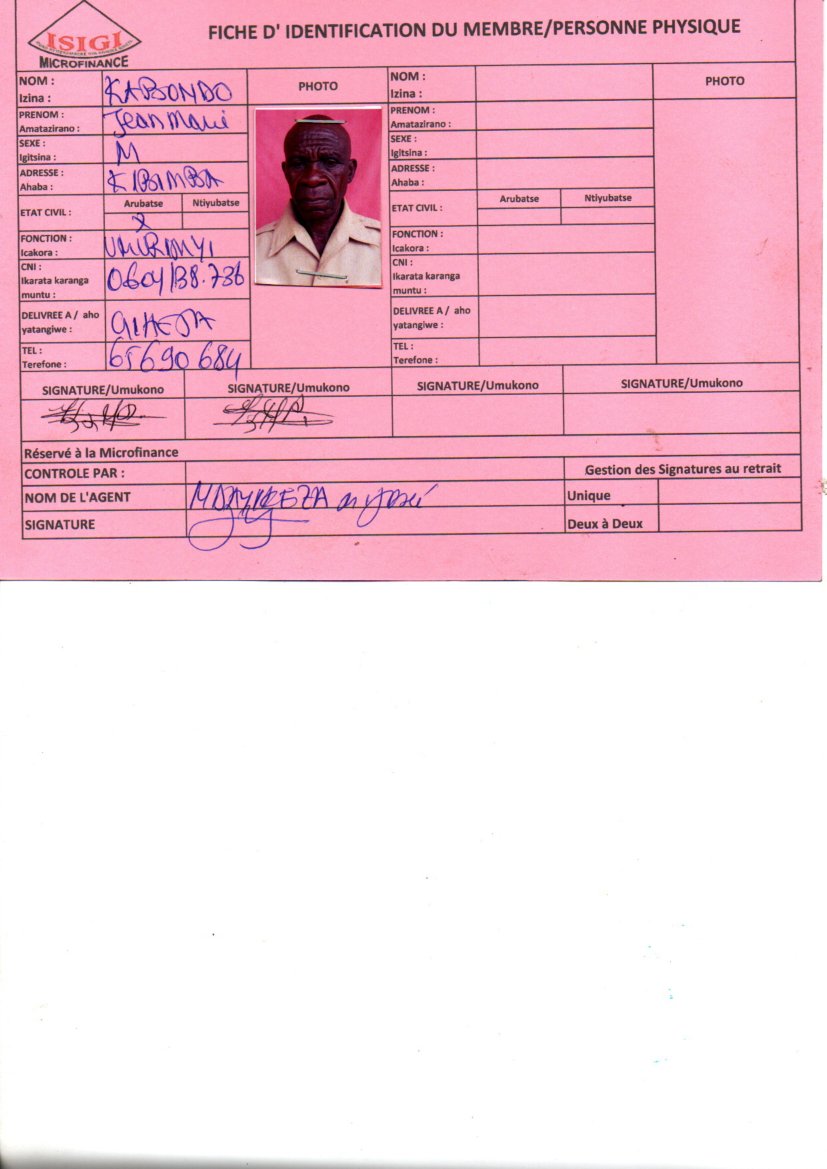 ISIGI
MICROFINANCE
FICHE D' IDENTIFICATION DU MEMBRE/PERSONNE PHYSIQUE
NOM :
Izina :
KABONDO
PHOTO
PRENOM :
Amatazirano :
Jean Marie
SEXE :
Igitsina :
M
ADRESSE :
Ahaba :
KIBIMBA
ETAT CIVIL :
Arubatse
Ntiyubatse
X
FONCTION :
Icakora :
UMURIMYI
CNI :
Ikarata karanga
muntu :
0604/138.736
DELIVREE A / aho
yatangiwe :
GIHETA
TEL :
Terefone :
65690 684
NOM :
Izina :
PHOTO
PRENOM :
Amatazirano :
SEXE :
Igitsina :
ADRESSE :
Ahaba :
ETAT CIVIL :
Arubatse
Ntiyubatse
FONCTION :
Icakora :
CNI :
Ikarata karanga
muntu :
DELIVREE A / aho
yatangiwe :
TEL :
Terefone :
SIGNATURE/Umukono
SIGNATURE/Umukono
SIGNATURE/Umukono
SIGNATURE/Umukono
Réservé à la Microfinance
CONTROLE PAR :
Gestion des Signatures au retrait
NOM DE L'AGENT
Unique
SIGNATURE
Deux à Deux